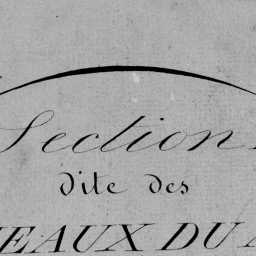 Section
dite des
EAUX DU